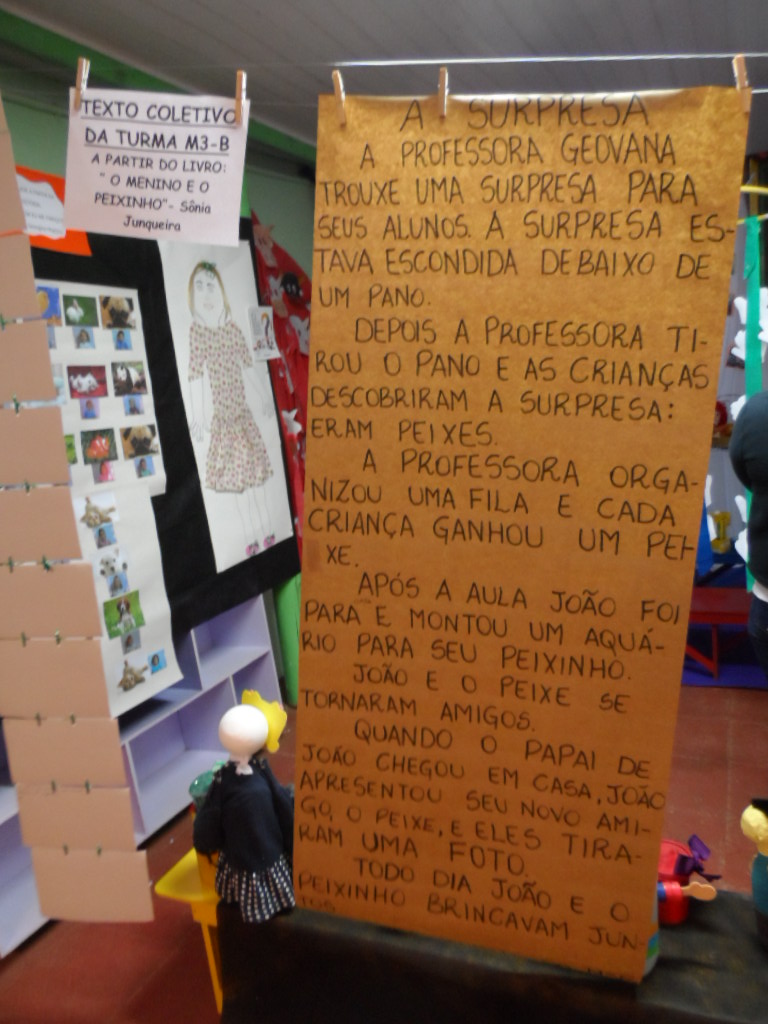 TEXTO COLETIVO
DA TURMA M3-B
A PARTIR DO LIVRO:
" O MENINO E O
PEIXINHO"- Sônia
Junqueira
A SURPRESA
A PROFESSORA GEOVANA
TROUXE UMA SURPRESA PARA
SEUS ALUNOS. A SURPRESA ES-
TAVA ESCONDIDA DEBAIXO DE
UM PANO.
DEPOIS A PROFESSORA TI-
ROU O PANO E AS CRIANÇAS
DESCOBRIRAM A SURPRESA:
ERAM PEIXES.
A PROFESSORA ORGA-
NIZOU UMA FILA E CADA
CRIANÇA GANHOU UM PEI-
XE.
APÓS A AULA JOÃO FOI
PARA E MONTOU UM AQUÁ-
RIO PARA SEU PEIXINHO.
JOÃO E O PEIXE SE
TORNARAM AMIGOS.
QUANDO O PAPAI DE
JOÃO CHEGOU EM CASA, JOÃO
APRESENTOU SEU NOVO AMI-
GO, O PEIXE, E ELES TIRA-
RAM UMA FOTO.
TODO DIA JOÃO E O
PEIXINHO BRINCAVAM JUN-
TOS.